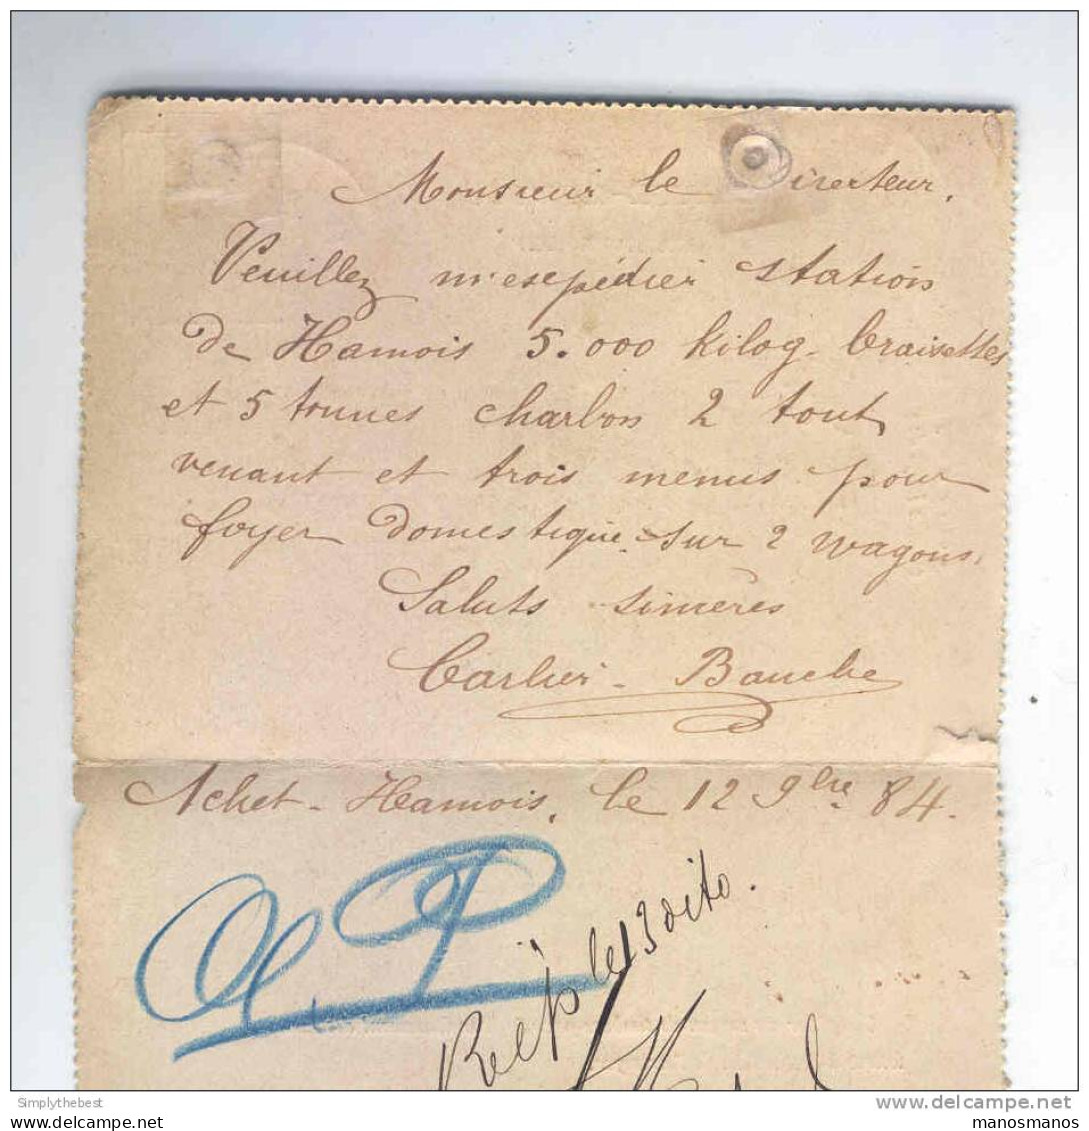 Monsieur le Directeur.
Veuillez m'expédier station
de Hamois 5.000 kilog. braisettes
et 5 tonnes charbon 2 tout
venant et trois menus pour
foyer domestique sur 2 wagons.
Saluts sincères
Carlier - Bauche
Achet - Hamois, le 12 9bre 84.
le 13 dito.
Simplythebest
delcampe.net
manosmanos
manosmanos